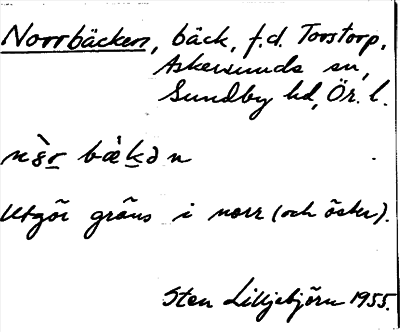 Norrbäcken, bäck, f.d. Torstorp,
Askersunds sn,
Sundby hd, Ör. l.
bæ̀kən
Utgör gräns i norr (och öster).
Sten Liljebjörn 1955.